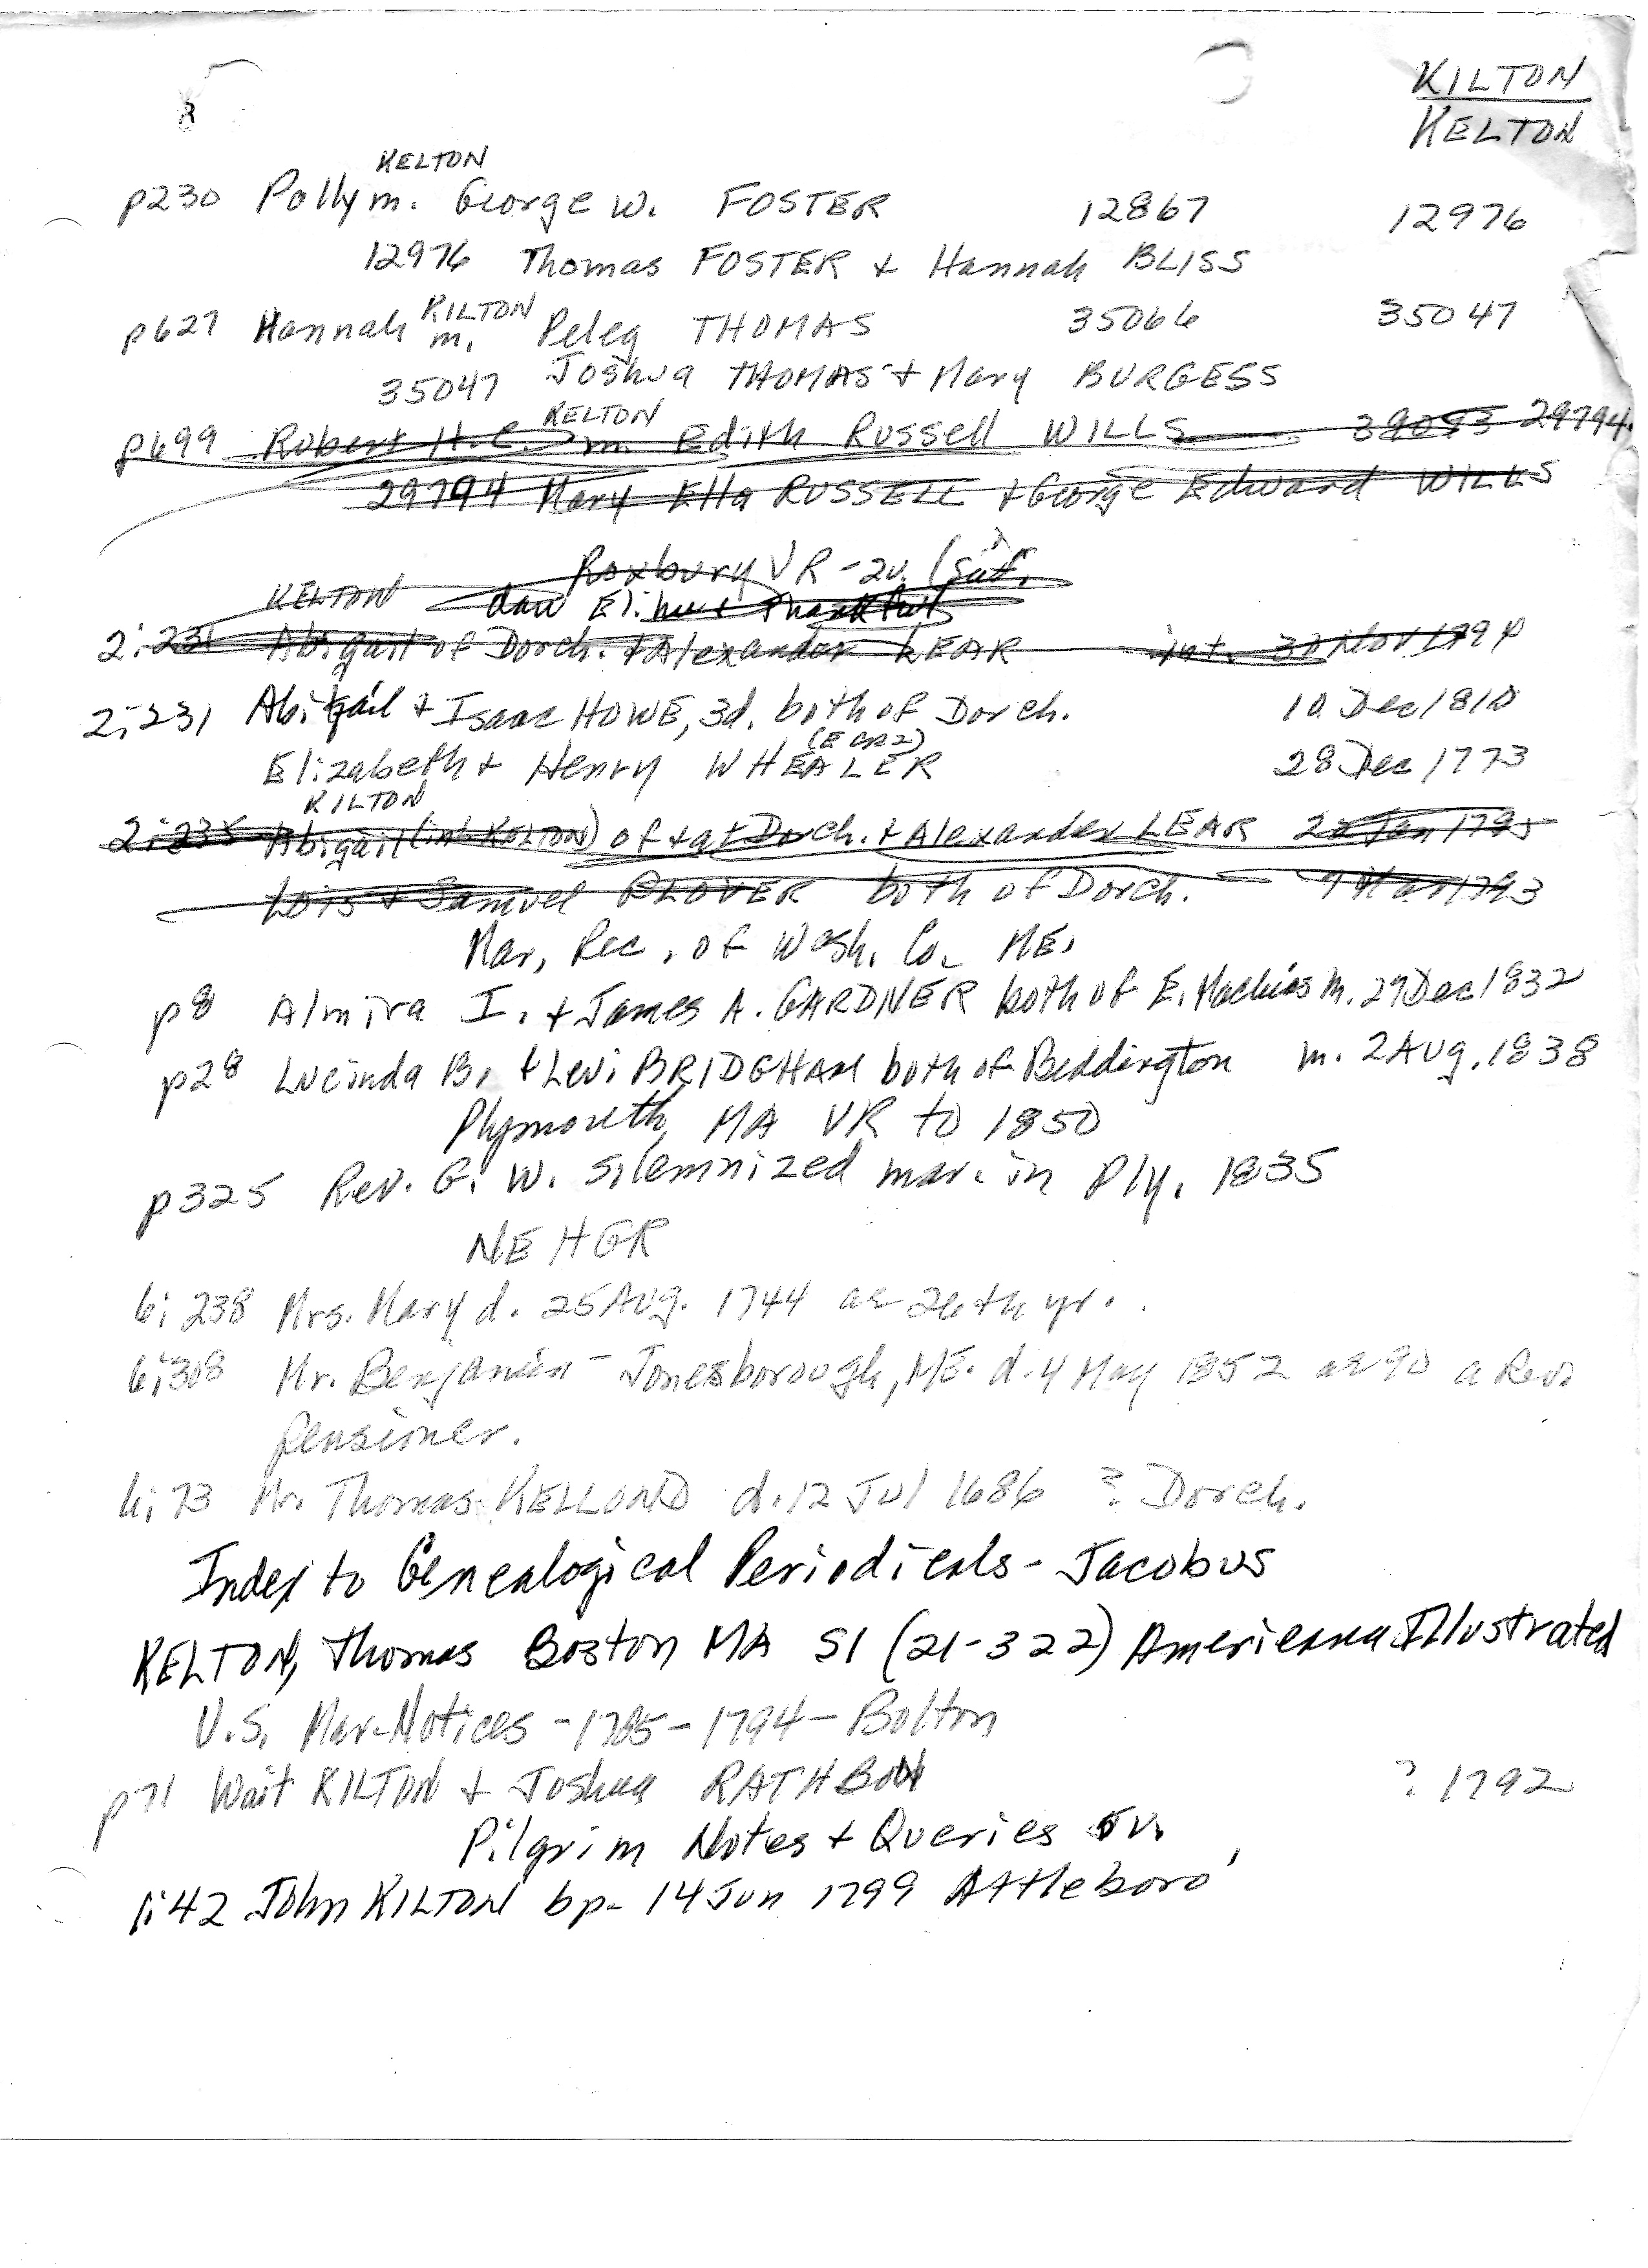 KILTON
KELTON
KELTON
p230 Polly m. George W. FOSTER 12867 12976
12976 Thomas FOSTER + Hannah BLISS
KILTON
p627 Hannah m. Peleg THOMAS 35066 35047
35047 Joshua THOMAS + Mary BURGESS
KELTON
p699 Robert H.C. m. Edith Russell WILLS 39093 29794
29794 Mary Ella RUSSELL + George Edward WILLS
Roxbury VR - 2v.
KELTON dau Elihu + Thankful
2:231 Abigail of Dorch. + Alexander LEAR int. 30 Nov 1794
2:231 Abigail + Isaac HOWE, 3d. both of Dorch. 10 Dec 1810
(E CR2)
Elizabeth + Henry WHEALER 28 Dec 1773
KILTON
2:235 Abigail (int. KELTON) of + at Dorch. + Alexander LEAR 22 Jan 1795
Lois + Samuel GLOVER both of Dorch. 7 Mar 1793
Mar. Rec. of Wash. Co. ME.
p8 Almira I. + James A. GARDNER both of E. Machias m. 29 Dec 1832
p28 Lucinda B. + Levi BRIDGHAM both of Beddington m. 2 Aug. 1838
Plymouth, MA VR to 1850
p325 Rev. G. W. solemnized mar. in Ply. 1835
NEHGR
6:238 Mrs. Mary d. 25 Aug. 1744 ae 26th yr.
6:308 Mr. Benjamin - Jonesborough, ME. d. 4 May 1852 ae 90 a Rev.
pensioner.
6:73 Mr. Thomas KELLOND d. 12 Jul 1686 ? Dorch.
Index to Genealogical Periodicals - Jacobus
KELTON, Thomas Boston MA S1 (21-322) Americana Illustrated
U.S. Mar. Notices - 1785-1794 - Bolton
p71 Wait KILTON + Joshua RATHBON ? 1792
Pilgrim Notes + Queries 5v.
1:42 John KILTON bp. 14 Jun 1799 Attleboro'